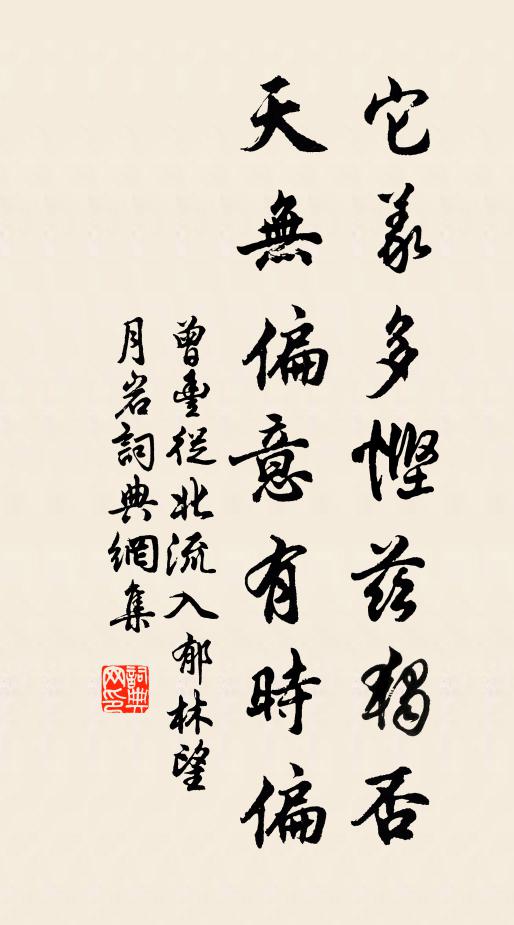 它美多慳茲獨否
天無偏意有時偏
曾豐從北流入郁林望
月岩詞典網集
詞典
网印